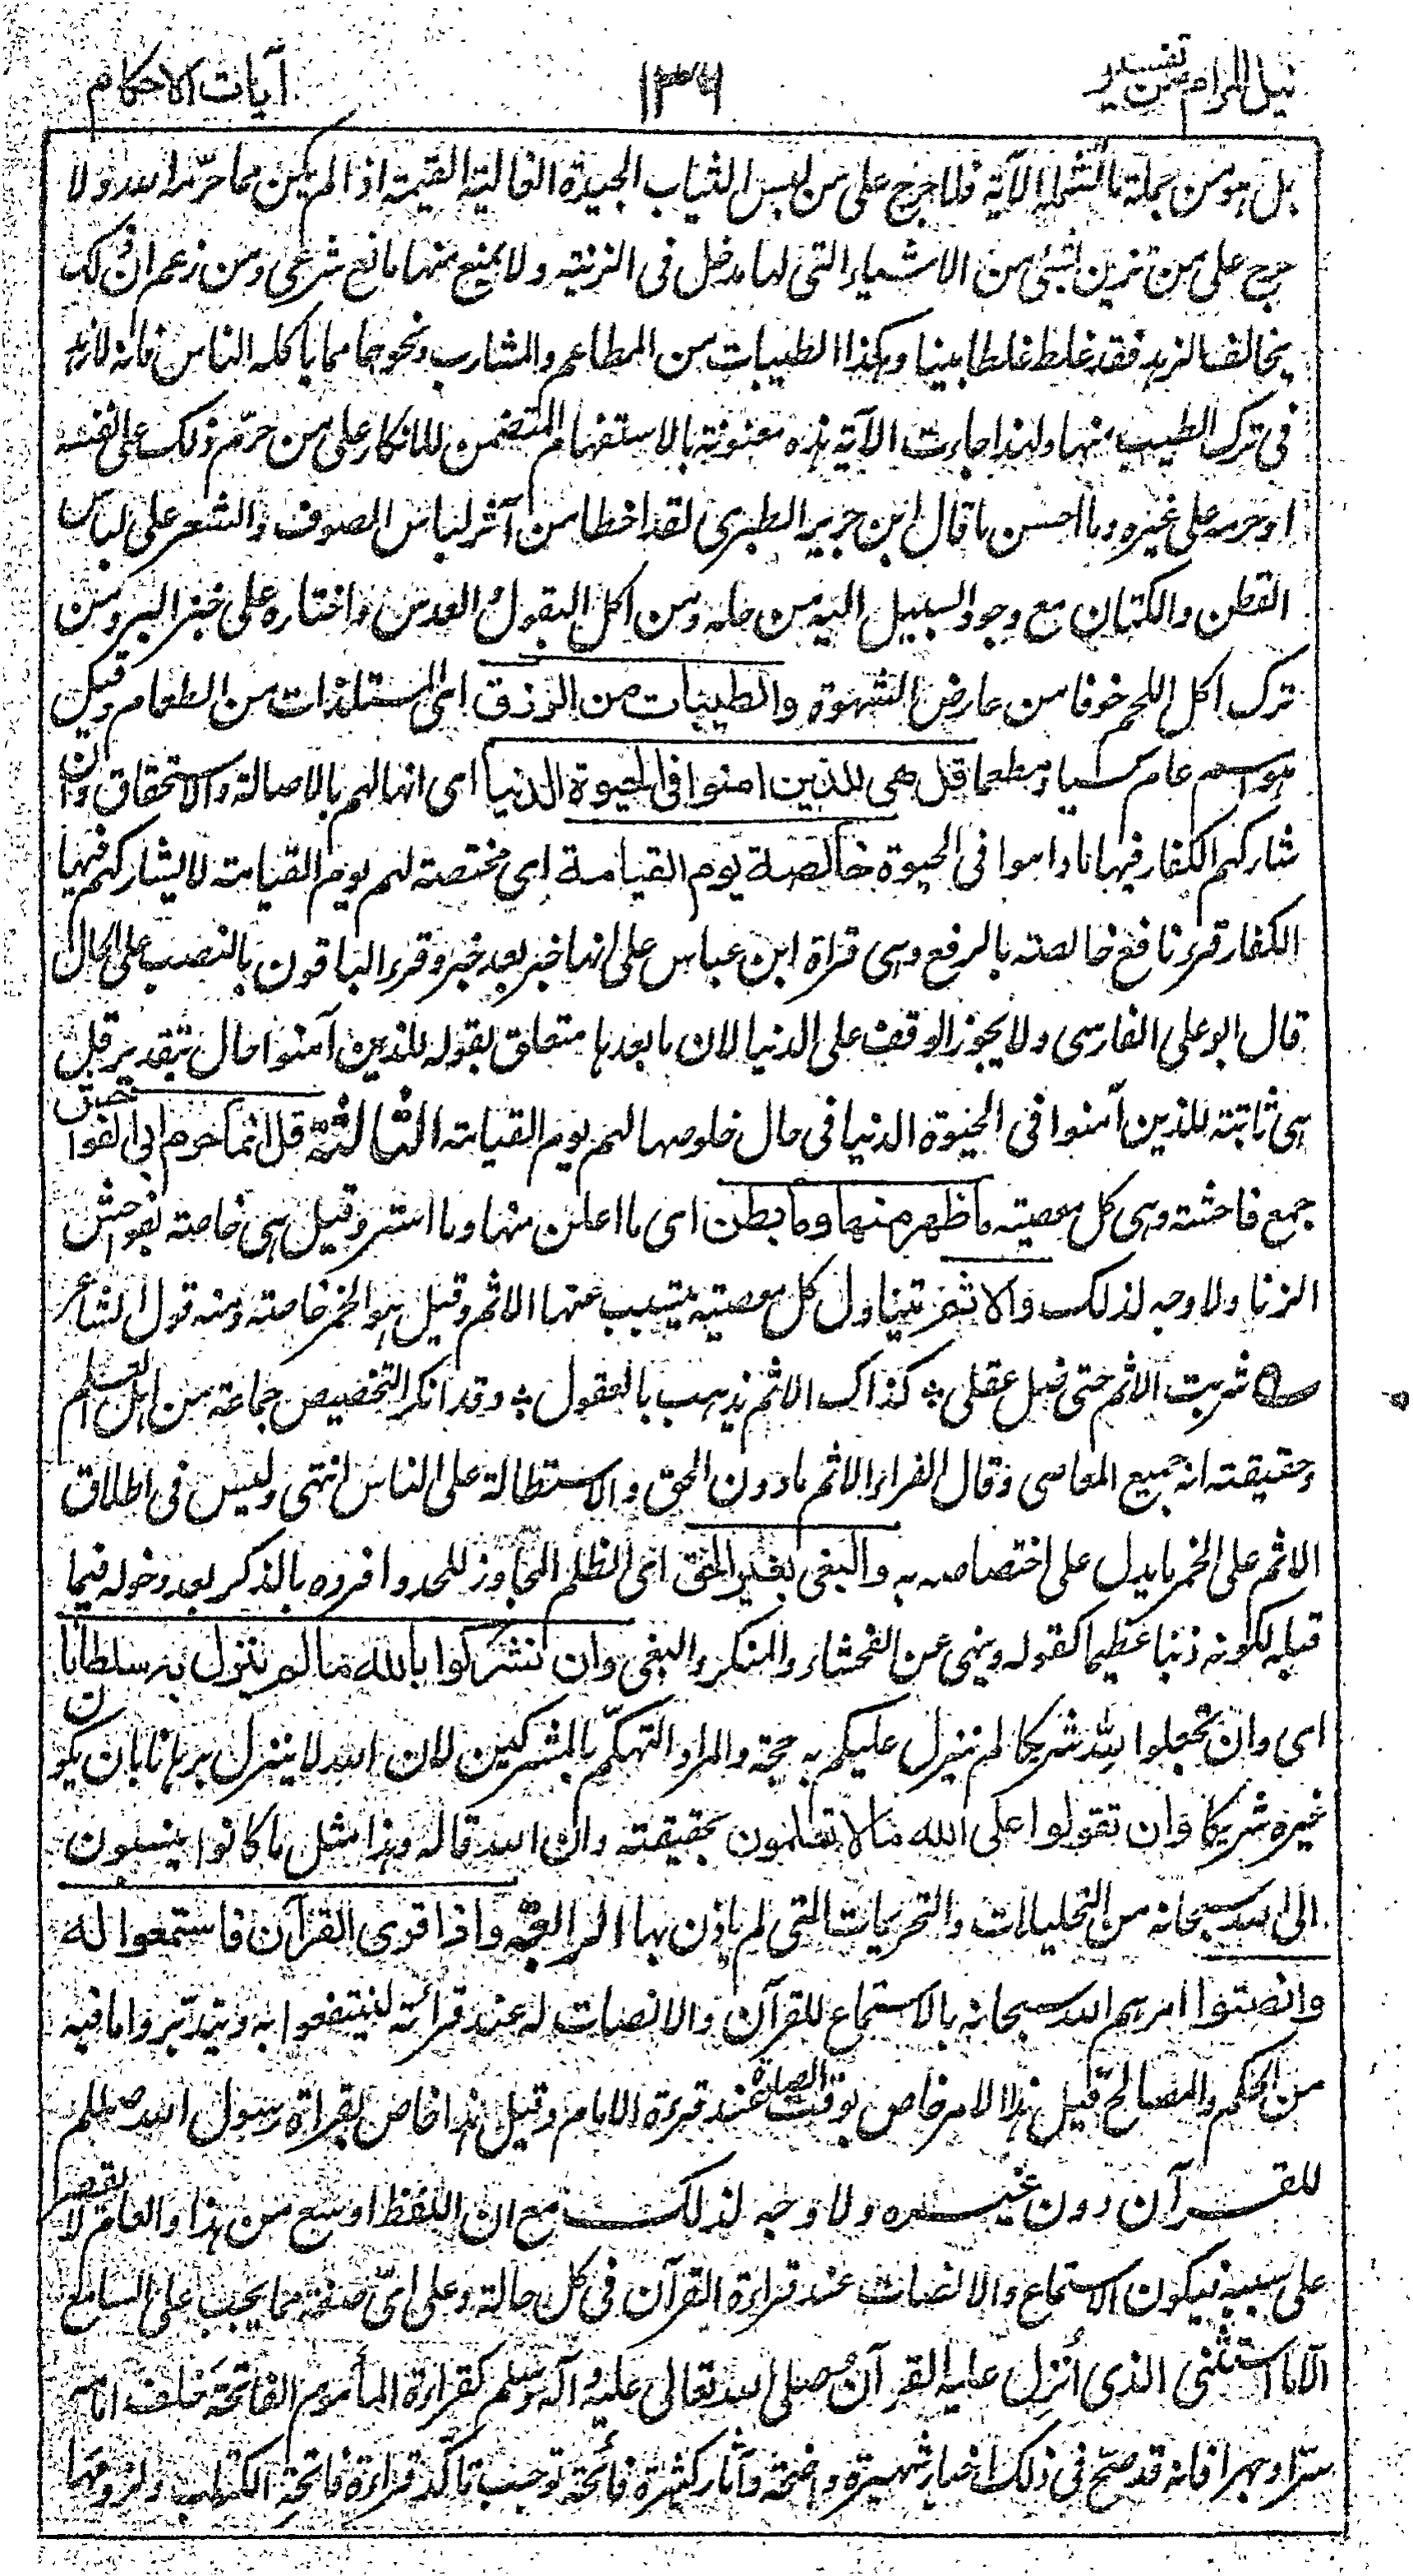 نيل المرام من تفسير
١٣٦
آيات الاحكام
بل هو من جملة ما تشمله الآية فلا حرج على من لبس الثياب الجيدة الغالية القيمة اذا لم يكن مما حرّمه الله ولا
حرج على من تزين بشئ من الاشياء التى لها مدخل فى الزينة ولا يمنع منها مانع شرعى ومن زعم ان ذلك
يخالف الزهد فقد غلط غلطا بينا وهكذا الطيبات من المطاعم والمشارب ونحوها مما ياكله الناس فانه لا زهد
فى ترك الطيب منها ولهذا جاءت الآية هذه معنونة بالاستفهام المتضمن للانكار على من حرّم ذلك على نفسه
او حرمه على غيره وما احسن ما قال ابن جرير الطبرى لقد اخطا من آثر لباس الصوف والشعر على لباس
القطن والكتان مع وجود السبيل اليه من حله ومن اكل البقول والعدس واختاره على خبز البر ومن
ترك اكل اللحم خوفا من عارض الشهوة والطيبات من الرزق اى المستلذات من الطعام وقيل
هو اسم عام كسبا ومطعما قل هى للذين امنوا فى الحيوة الدنيا اى انها لهم بالاصالة والاستحقاق وان
شاركهم الكفار فيها ما داموا فى الحيوة خالصة يوم القيامة اى مختصة لهم يوم القيامة لا يشاركهم فيها
الكفار قرء نافع خالصة بالرفع وهى قراة ابن عباس على انها خبر بعد خبر وقرء الباقون بالنصب على الحال
قال ابو على الفارسى ولا يجوز الوقف على الدنيا لان ما بعدها متعلق بقوله للذين آمنوا حال بتقدير قل
هى ثابتة للذين آمنوا فى الحيوة الدنيا فى حال خلوصها لهم يوم القيامة الثالثة قل انما حرم ربى الفواحش
جمع فاحشة وهى كل معصية ما ظهر منها وما بطن اى ما اعلن منها وما استر وقيل هى خاصة بفواحش
الزنا ولا وجه لذلك والاثم يتناول كل معصية يتسبب عنها الاثم وقيل هو الخمر خاصة ومنه قول الشاعر
شربت الاثم حتى ضل عقلى ؛ كذاك الاثم يذهب بالعقول ؛ وقد انكر التخصيص جماعة من اهل العلم
وحقيقته انه جميع المعاصى وقال الفراء الاثم ما دون الحق والاستطالة على الناس انتهى وليس فى اطلاق
الاثم على الخمر ما يدل على اختصاصه به والبغى بغير الحق اى الظلم المجاوز للحد وافرده بالذكر بعد دخوله فيما
قبله لكونه ذنبا عظيما كقوله وينهى عن الفحشاء والمنكر والبغى وان تشركوا بالله ما لم ينزل به سلطانا
اى وان تجعلوا لله شريكا لم ينزل عليكم به حجة والمراد التهكّم بالمشركين لان الله لا ينزل برهانا بان يكون
غيره شريكا وان تقولوا على الله مالا تعلمون بحقيقته وان الله قاله وهذا مثل ما كانوا ينسبون
الى الله سبحانه من التحليلات والتحريمات التى لم ياذن بها الرابعة واذا قرى القرآن فاستمعوا له
وانصتوا امرهم الله سبحانه بالاستماع للقرآن والانصات له عند قرائته لينتفعوا به ويتدبّروا ما فيه
من الحكم والمصالح قيل هذا الامر خاص بوقت الصلاة عند قرءة الامام وقيل هذا خاص بقراة رسول الله صلعم
للقرآن دون غيره ولا وجه لذلك مع ان اللفظ اوسع من هذا والعام لا يقصر
على سببه فيكون الاستماع والانصات عند قراءة القرآن فى كل حالة وعلى اىّ صفة مما يجب على السامع
الا ما استثنى الذى اُنزل عليه القرآن صلى الله تعالى عليه وآله وسلم كقراءة المأموم الفاتحة خلف امامه
سرّا وجهرا فانه قد صحّ فى ذلك اخبار شهيرة واضحة وآثار كثيرة فائحة توجب تاكّد قراءة فاتحة الكتاب ولزومها